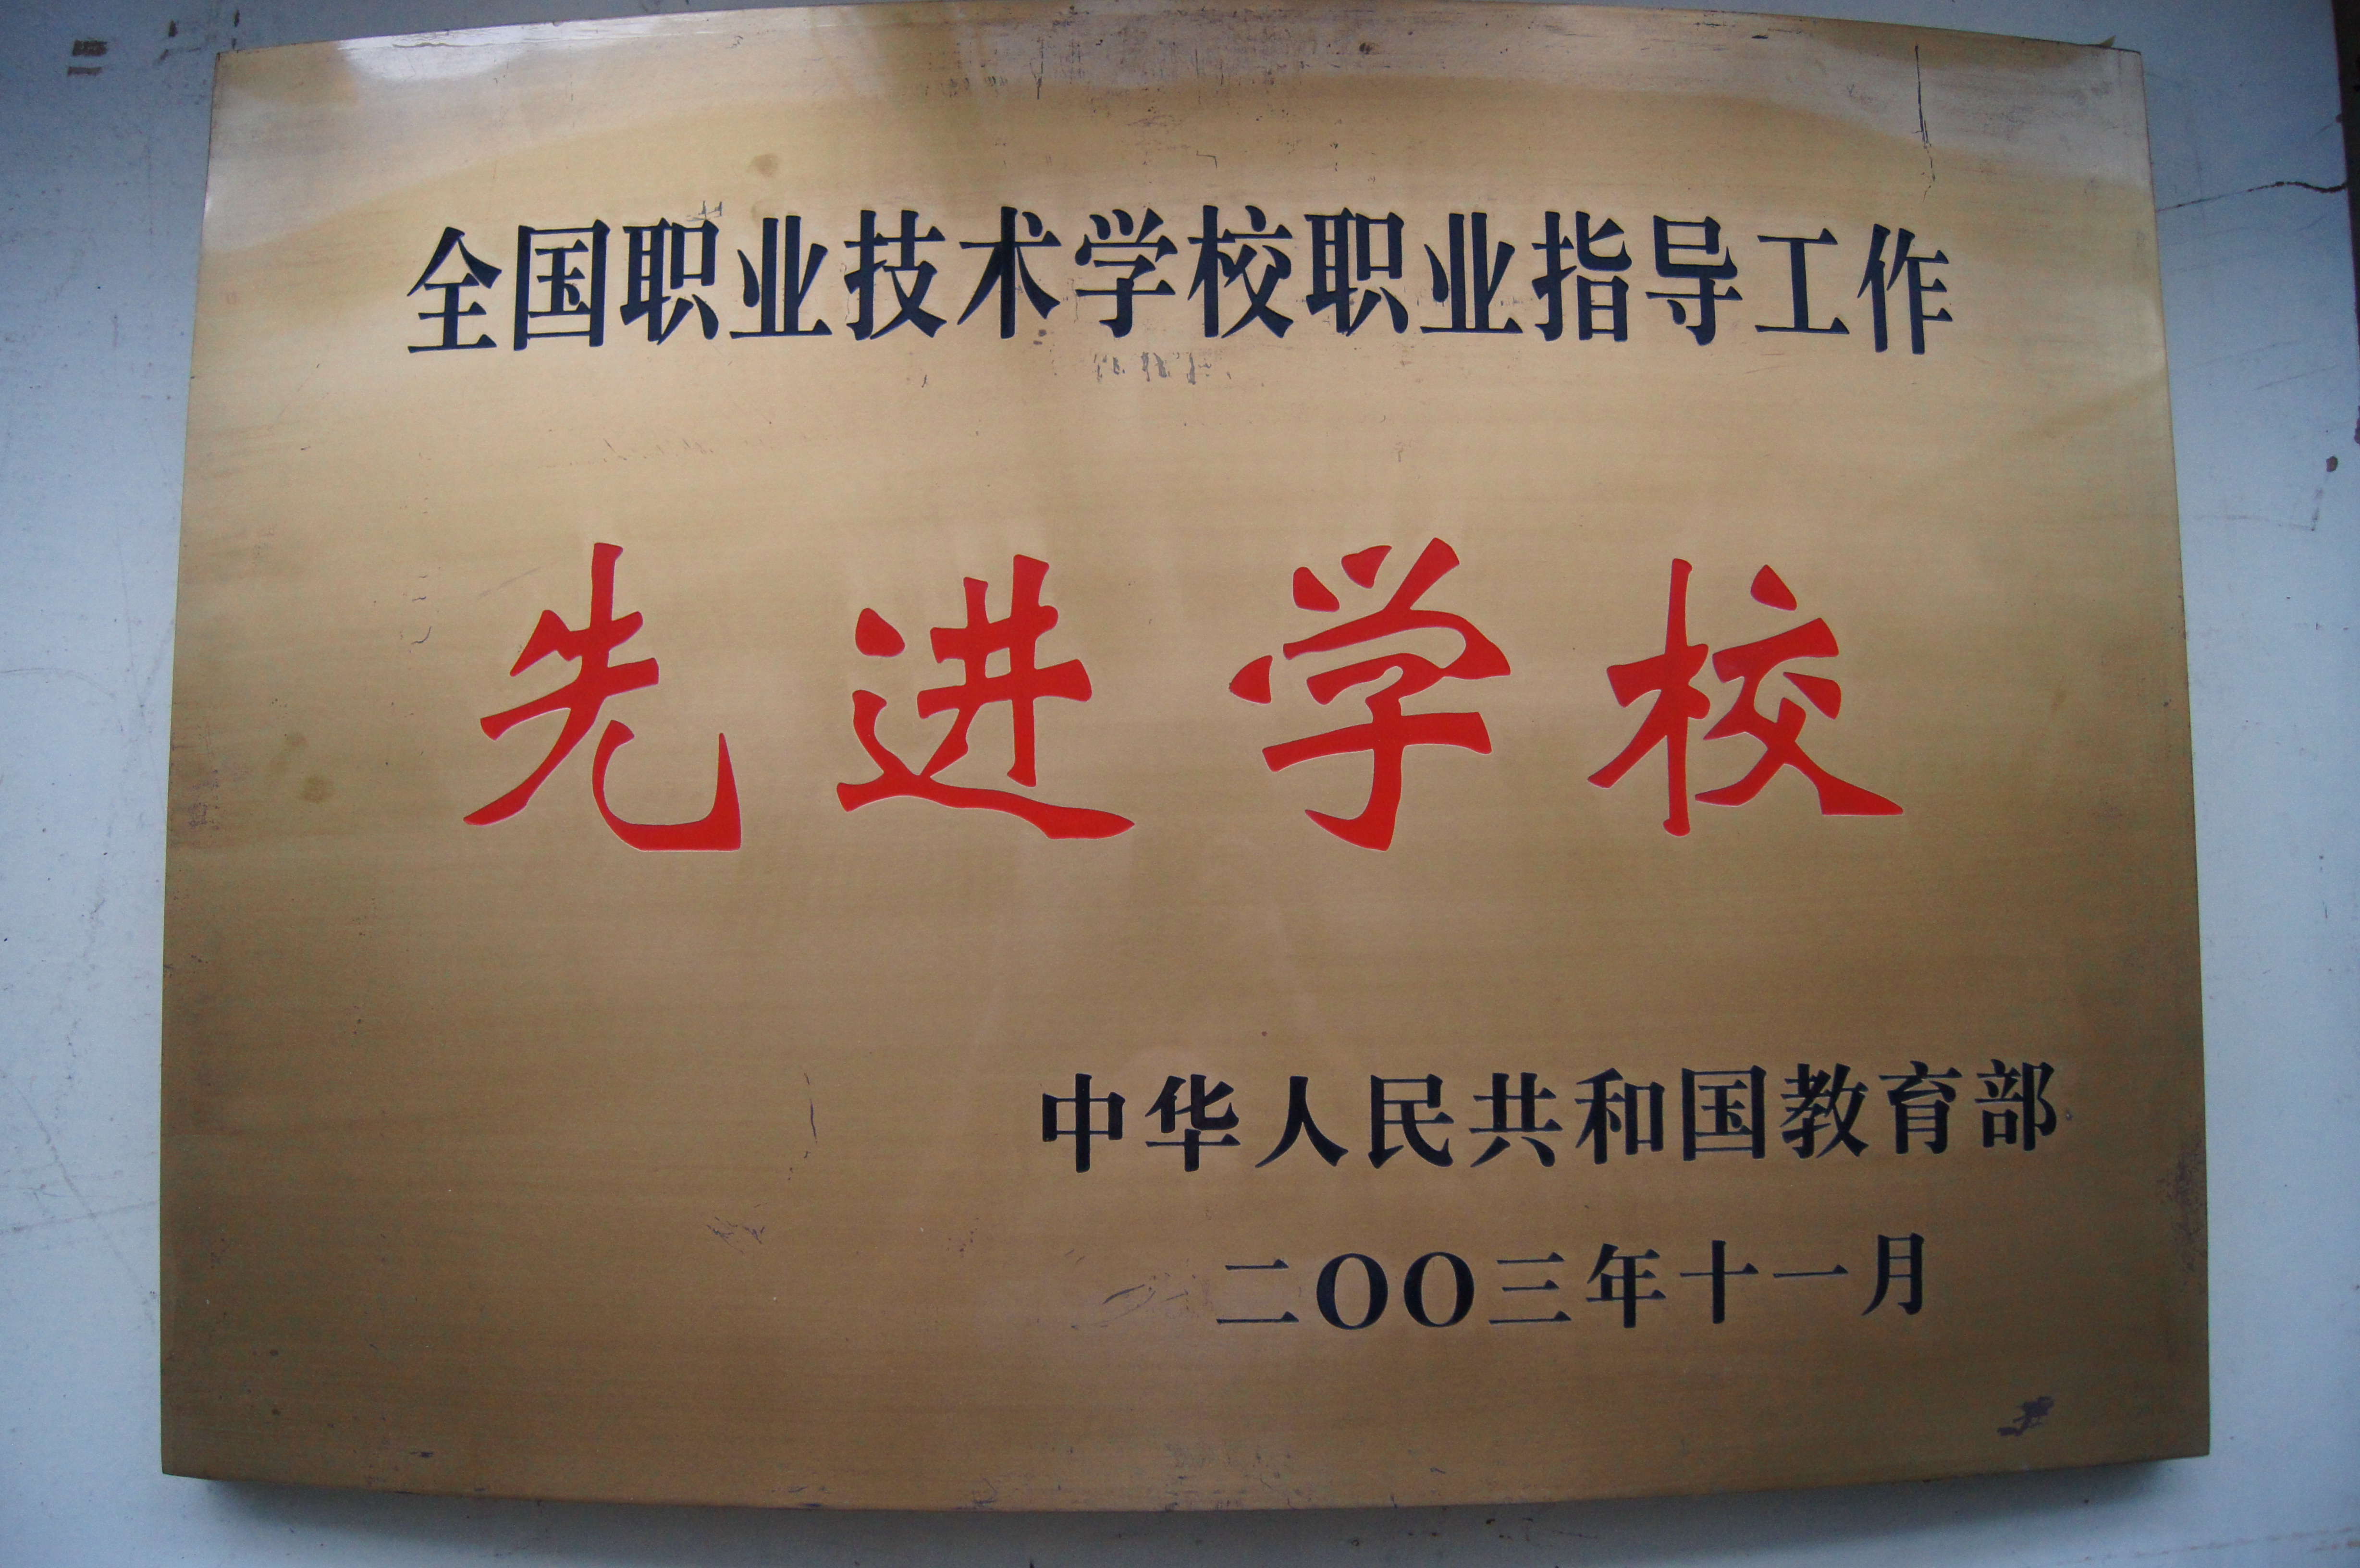 全国职业技术学校职业指导工作
先进学校
中华人民共和国教育部
二OO三年十一月